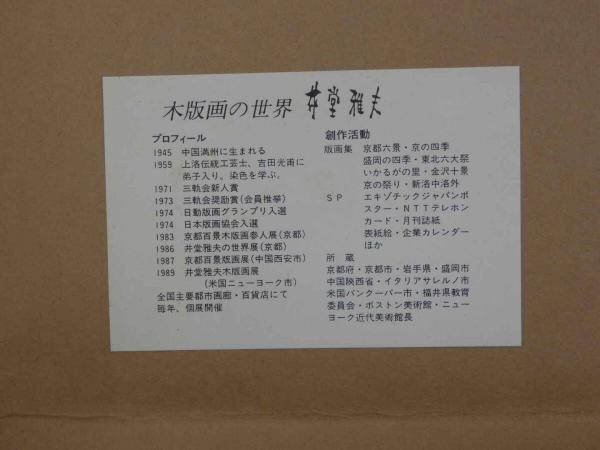 木版画の世界 井堂雅夫
プロフィール
1945 中国満州に生まれる
1959 上洛伝統工芸士、吉田光甫に
弟子入り。染色を学ぶ。
1971 三軌会新人賞
1973 三軌会奨励賞(会員推挙)
1974 日動版画グランプリ入選
1974 日本版画協会入選
1983 京都百景木版画参人展(京都)
1986 井堂雅夫の世界展(京都)
1987 京都百景版画展(中国西安市)
1989 井堂雅夫木版画展
(米国ニューヨーク市)
全国主要都市画廊・百貨店にて
毎年、個展開催
創作活動
版画集 京都六景・京の四季
盛岡の四季・東北六大祭
いかるがの里・金沢十景
京の祭り・新洛中洛外
SP エキゾチックジャパンポ
スター・NTTテレホン
カード・月刊誌紙
表紙絵・企業カレンダー
ほか
所蔵
京都府・京都市・岩手県・盛岡市
中国陝西省・イタリアサレルノ市
米国バンクーバー市・福井県教育
委員会・ボストン美術館・ニュー
ヨーク近代美術館長